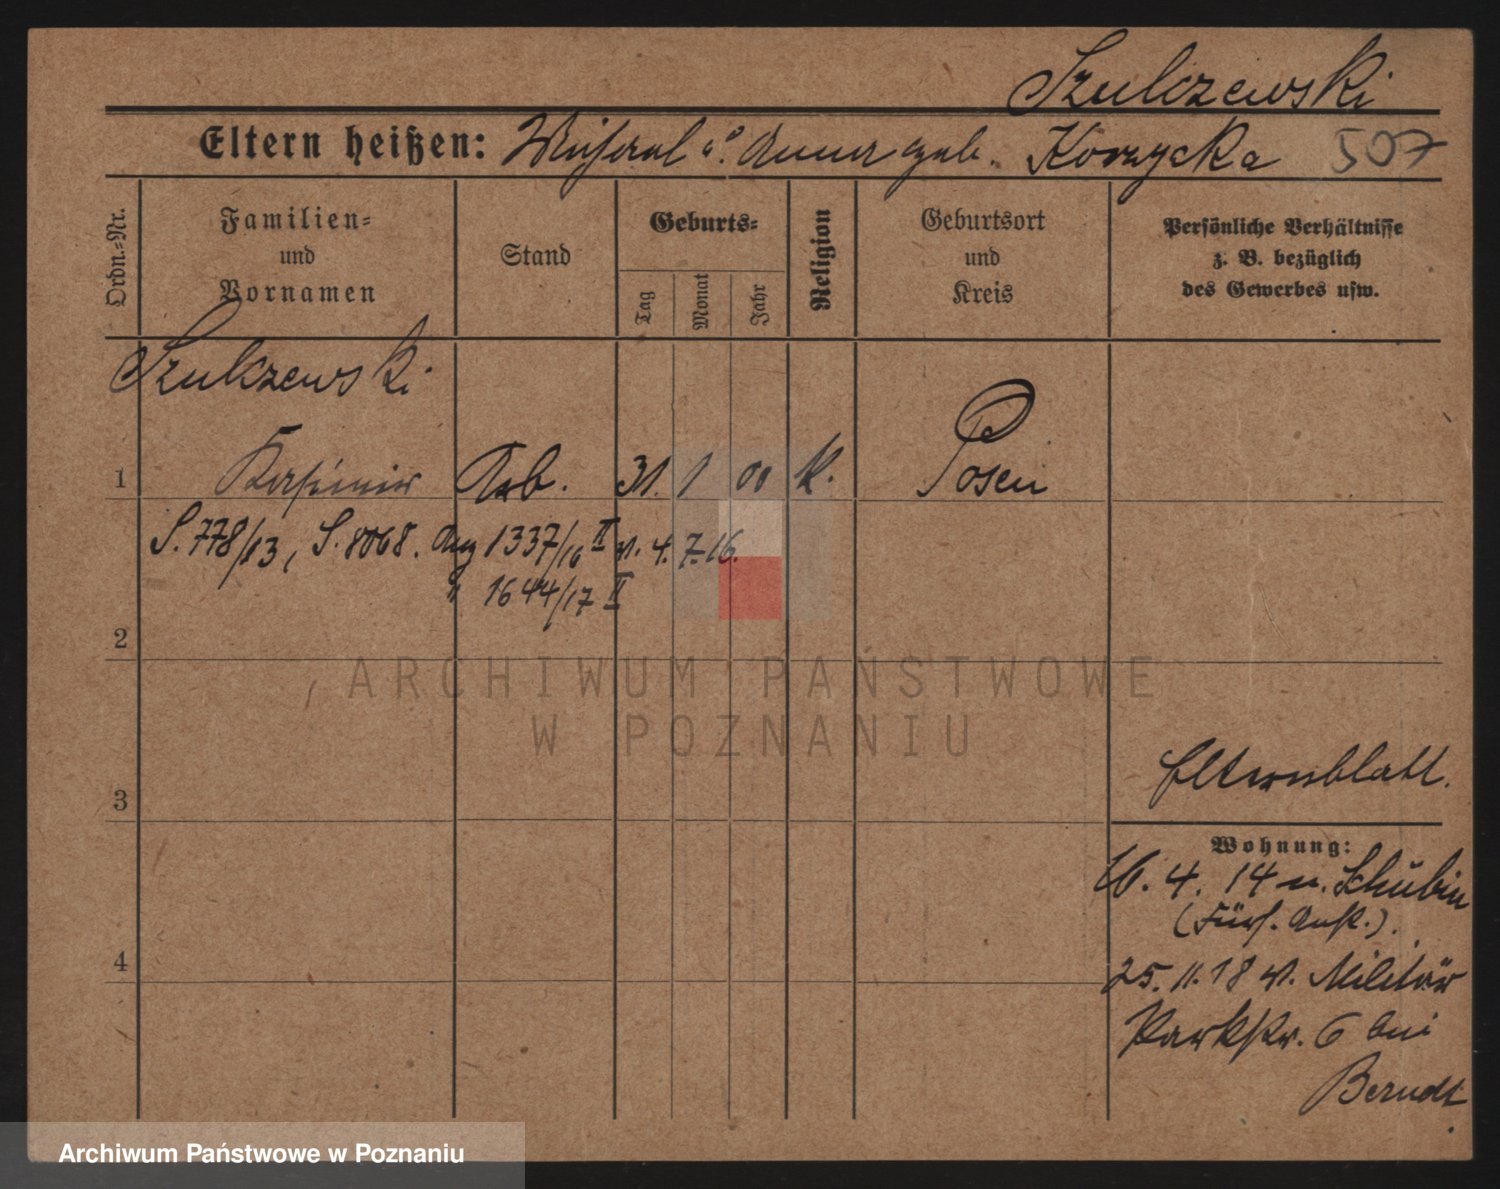 Szulczewski
Eltern heißen: Michael u. Anna geb. Korzycka 507
Ordn.=Nr.
Familien=
und
Vornamen
Stand
Geburts=
Tag
Monat
Jahr
Religion
Geburtsort
und
Kreis
Persönliche Verhältnisse
z. B. bezüglich
des Gewerbes usw.
Szulczewski
1 Kasimir Arb. 31. 1 00 K. Posen
S. 778/13, S. 8068. Aug 1337/16 II v. 4. 7. 16.
" 1644/17 II
2
ARCHIWUM PAŃSTWOWE
W POZNANIU
Elternblatt.
3
Wohnung:
16. 4. 14 n. Schubin
(Fürs. Anst.).
4
25. 11. 18 v. Militär
Parkstr. 6 bei
Berndt
Archiwum Państwowe w Poznaniu